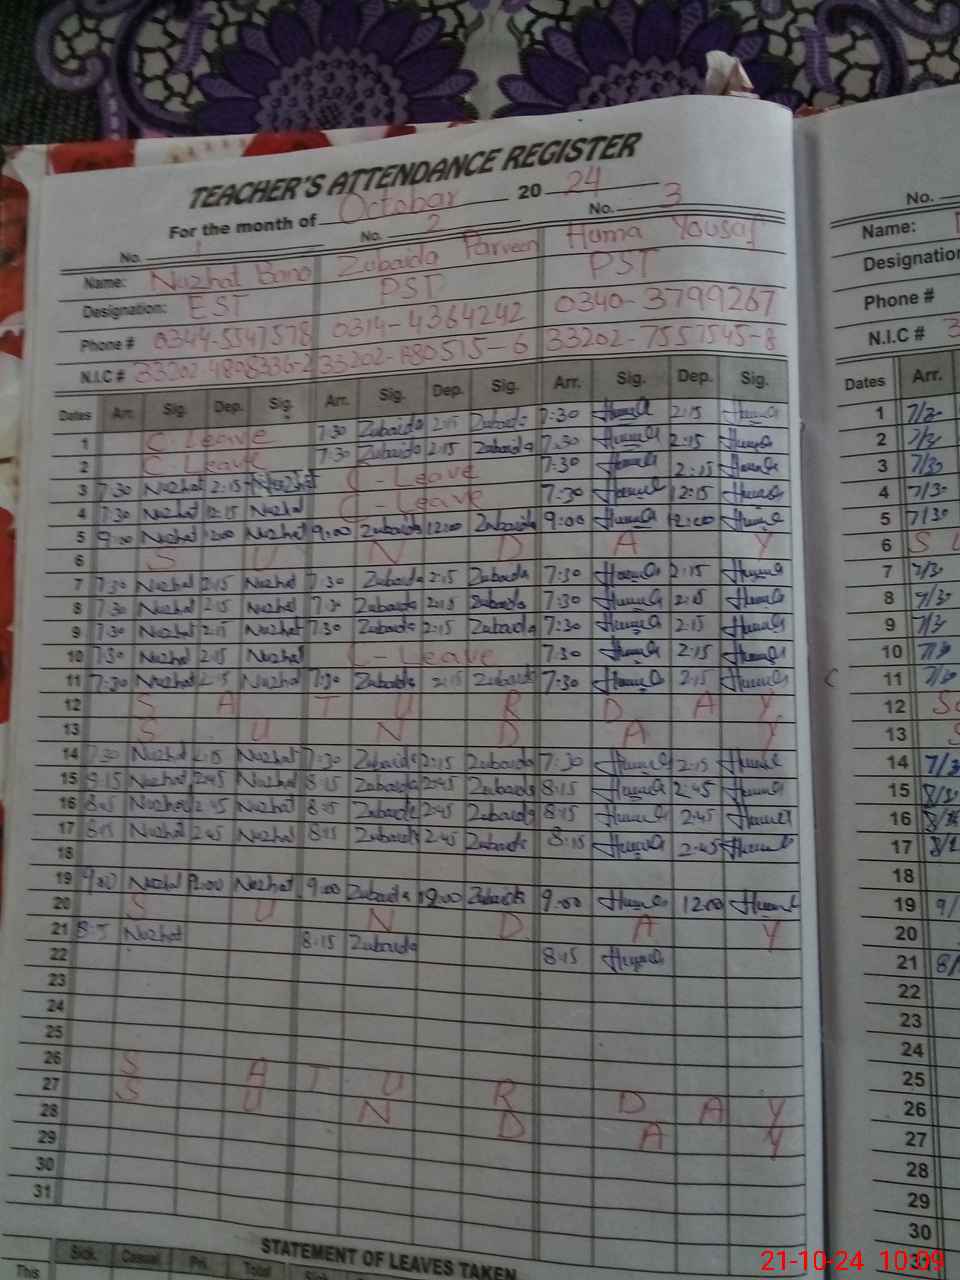 TEACHER'S ATTENDANCE REGISTER
For the month of Octobar 20 24
No. 1 No. 2 No. 3
Name: Nuzhat Bano Zubaida Parveen Huma Yousaf
Designation: EST PST PST
Phone # 0344-5547578 0314-4364242 0340-3799267
N.I.C # 33202-4808336-2 33202-7557545-8
Dates Arr. Sig. Dep. Sig. Arr. Sig. Dep. Sig. Arr. Sig. Dep. Sig.
1 C-Leave 7:30 Zubaida 2:15 Zubaida 7:30 Huma 2:15 Huma
2 C-Leave 7:30 Zubaida 2:15 Zubaida 7:30 Huma 2:15 Huma
3 7:30 Nuzhat 2:15 Nuzhat C-Leave 7:30 Huma 2:15 Huma
4 7:30 Nuzhat 12:15 Nuzhat C-Leave 7:30 Huma 12:15 Huma
5 9:00 Nuzhat 12:00 Nuzhat 9:00 Zubaida 12:00 Zubaida 9:00 Huma 12:00 Huma
6 S U N D A Y
7 7:30 Nuzhat 2:15 Nuzhat 7:30 Zubaida 2:15 Zubaida 7:30 Huma 2:15 Huma
8 7:30 Nuzhat 2:15 Nuzhat 7:30 Zubaida 2:15 Zubaida 7:30 Huma 2:15 Huma
9 7:30 Nuzhat 2:15 Nuzhat 7:30 Zubaida 2:15 Zubaida 7:30 Huma 2:15 Huma
10 7:30 Nuzhat 2:15 Nuzhat C-Leave 7:30 Huma 2:15 Huma
11 7:30 Nuzhat 2:15 Nuzhat 7:30 Zubaida 2:15 Zubaida 7:30 Huma 2:15 Huma
12 S A T U R D A Y
13 S U N D A Y
14 7:30 Nuzhat 2:15 Nuzhat 7:30 Zubaida 2:15 Zubaida 7:30 Huma 2:15 Huma
15 8:15 Nuzhat 2:45 Nuzhat 8:15 Zubaida 2:45 Zubaida 8:15 Huma 2:45 Huma
16 8:15 Nuzhat 2:45 Nuzhat 8:15 Zubaida 2:45 Zubaida 8:15 Huma 2:45 Huma
17 8:15 Nuzhat 2:45 Nuzhat 8:15 Zubaida 2:45 Zubaida 8:15 Huma 2:45 Huma
18
19 9:00 Nuzhat 12:00 Nuzhat 9:00 Zubaida 12:00 Zubaida 9:00 Huma 12:00 Huma
20 S U N D A Y
21 8:15 Nuzhat 8:15 Zubaida 8:15 Huma
22
23
24
25
26 S A T U R D A Y
27 S U N D A Y
28
29
30
31
STATEMENT OF LEAVES TAKEN
This Sick. Casual Pri. Total Sick
No.
Name:
Designation
Phone #
N.I.C # 3
Dates Arr.
1
2
3 7/30
4
5 7/30
6 S U
7
8
9
10
11
12 S
13 S
14
15
16
17
18
19 9/
20
21 8/
22
23
24
25
26
27
28
29
30
31
21-10-24 10:09